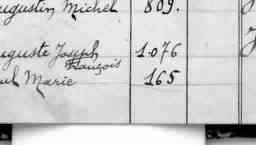 augustin Michel 809.
auguste Joseph 1076
François
ul Marie 165